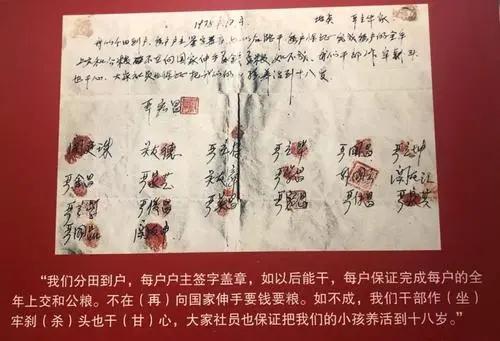 1978年12月 地点 严立华家
我们分田到户每户户主签字盖章如以后能干每户保证完成每户的全年
上交和公粮不在向国家伸手要钱要粮如不成我们干部作牢刹
头也干心大家社员也保证把我们的小孩养活到十八岁
严宏昌
关廷珠 关友德 严立符 严立华 严国昌 严立坤
严金昌 严家芝 关友章 严学昌 韩国云 关友江
严立学 严俊昌 严美昌 严宏昌 严付昌 严家其
严国品 关友申
“我们分田到户，每户户主签字盖章，如以后能干，每户保证完成每户的全
年上交和公粮。不在（再）向国家伸手要钱要粮。如不成，我们干部作（坐）
牢刹（杀）头也干（甘）心，大家社员也保证把我们的小孩养活到十八岁。”